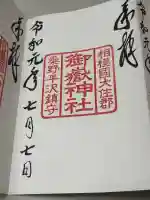 奉拝
相模國大住郡
御嶽神社
秦野平沢鎮守
令和元年七月七日